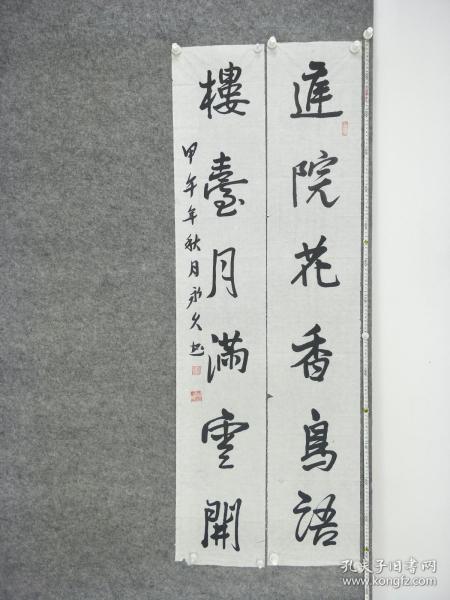 庭院花香鳥語
樓臺月滿雲開
甲午年秋月永久书
孔夫子旧书网
www.kongfz.com